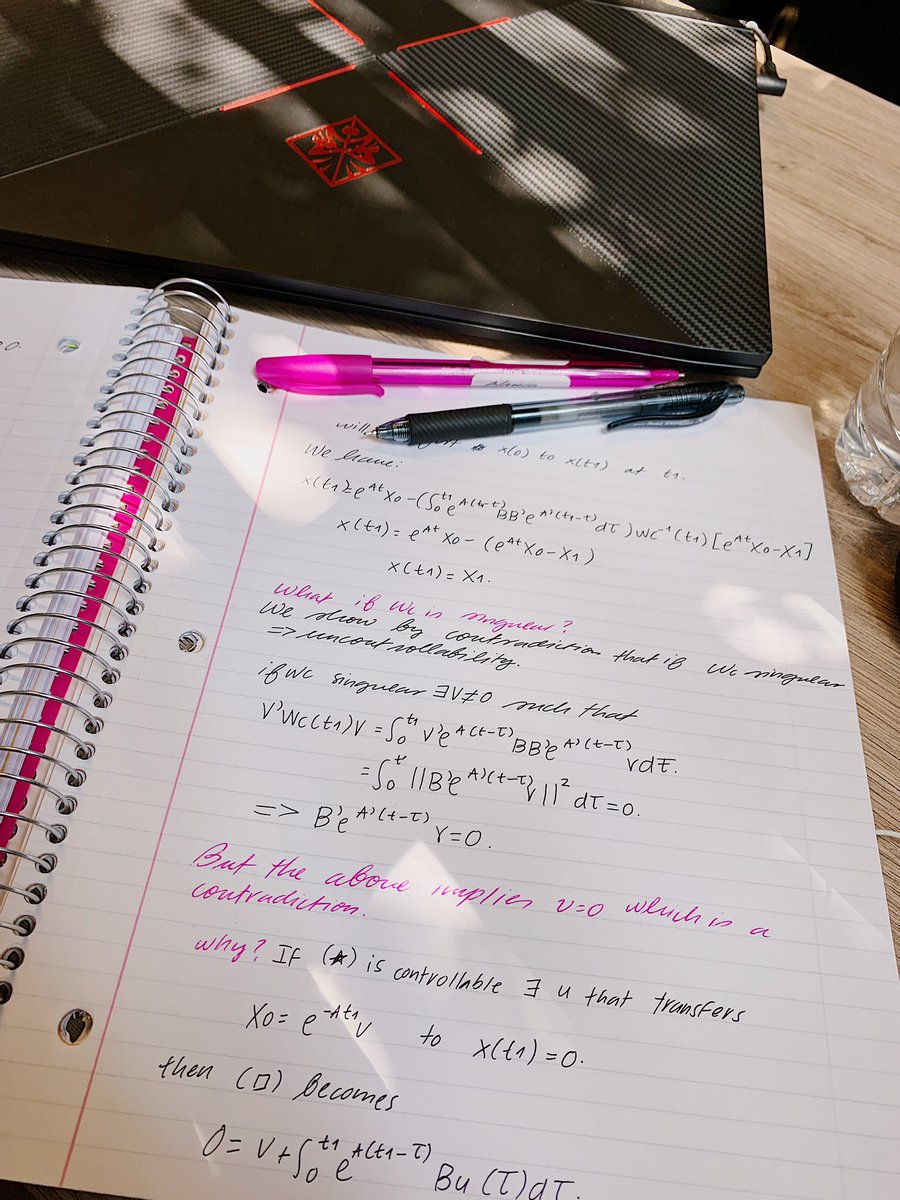 x(0) to x(t1) at t1.
We have:
x(t1)=e^At X0-(∫0^t1 e^A(t1-τ) BB'e^A'(t1-τ) dτ) Wc^-1(t1)[e^At X0-X1]
x(t1) = e^At X0 - (e^At X0-X1)
x(t1) = X1.
What if Wc is singular?
We show by contradiction that if Wc singular
=> uncontrollability.
if Wc singular ∃V≠0 such that
V'Wc(t1)V = ∫0^t1 v'e^A(t-τ) BB'e^A'(t-τ) v dτ.
= ∫0^t ||B'e^A'(t-τ) v||^2 dτ=0.
=> B'e^A'(t-τ) v=0.
But the above implies v=0 which is a
contradiction.
why? If (*) is controllable ∃ u that transfers
X0 = e^-At1 v to x(t1)=0.
then (□) becomes
0= V+∫0^t1 e^A(t1-τ) Bu(τ)dτ.